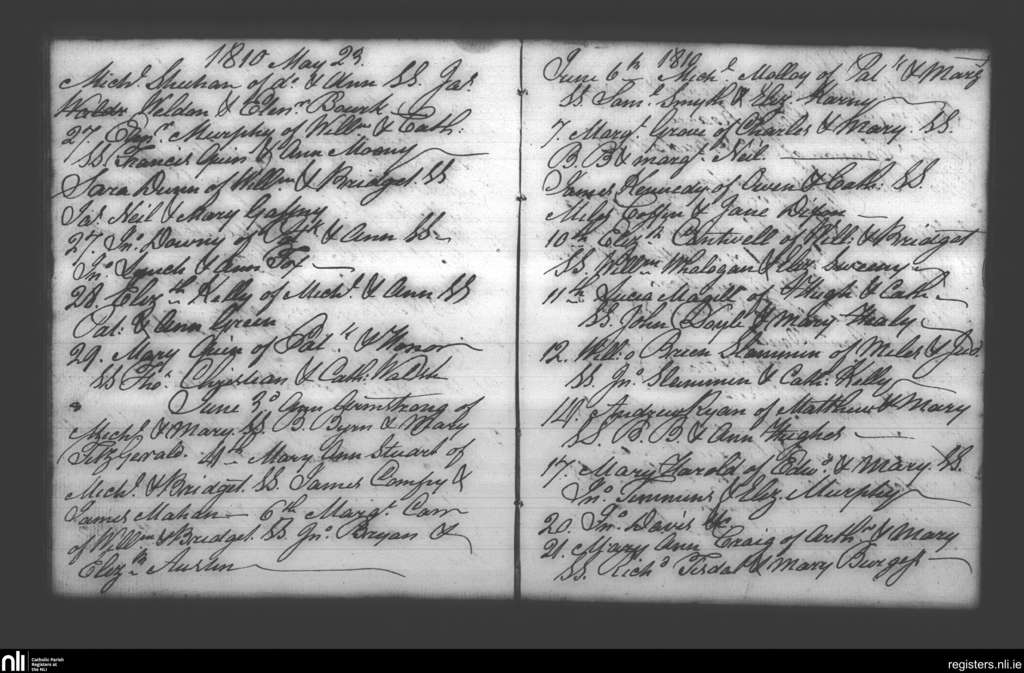 1810 May 23.
Mich.l Sheehan of d.o & Ann SS. Ja.s
Weldon & Elen.r Bourk
27. Edm.d Murphy of Will.m & Cath:
SS Frances Quin & Ann Moony
Sara Dunn of Will.m & Bridget. SS
Ja.s Neil & Mary Gaffny
27. Jn.o Downy of & Ann SS
Jn.o Lynch & Ann Fox
28. Eliz.th Kelly of Mich.l & Ann SS
Pat: & Ann Green
29. Mary Quin of Pat.k & Honor
SS Tho.s Christian & Cath: Walsh
June 3.d Ann Armstrong of
Mich.l & Mary. SS B. Byrn & Mary
Fitzgerald. 4th Mary Ann Stuart of
Mich.l & Bridget. SS. James Comfry &
James Mahan 6th Marg.t Carr
of Will.m & Bridget. SS. Jn.o Bryan &
Eliz.th Austin
1810
June 6th Mich.l Molloy of Pat.k & Mary
SS Sam.l Smyth & Eliz. Harny
7. Marg.t Grace of Charles & Mary. SS.
B. B & Marg.t Neil.
James Kennedy of Owen & Cath: SS.
Miles Coffin & Jane Dixon
10th Eliz.th Cantwell of Will: & Bridget
SS. Will.m Whalogan & Eliz. Sweeny
11th Lucia Magill of Hugh & Cath:
SS. John Doyle & Mary Healy
12. Will.m Breen Slammin of Miles & Jud.
SS. Jn.o Slammin & Cath: Kelly
14. Andrew Ryan of Matthew & Mary
SS. B. B & Ann Hughes
17. Mary Harold of Edw.d & Mary. SS.
Jn.o Timmins & Eliz. Murphy
20. Jn.o Davis &c
21. Mary Ann Craig of Arth.r & Mary
SS. Rich.d Tisdal & Mary Burgess
nli
Catholic Parish
Registers at
the NLI
registers.nli.ie